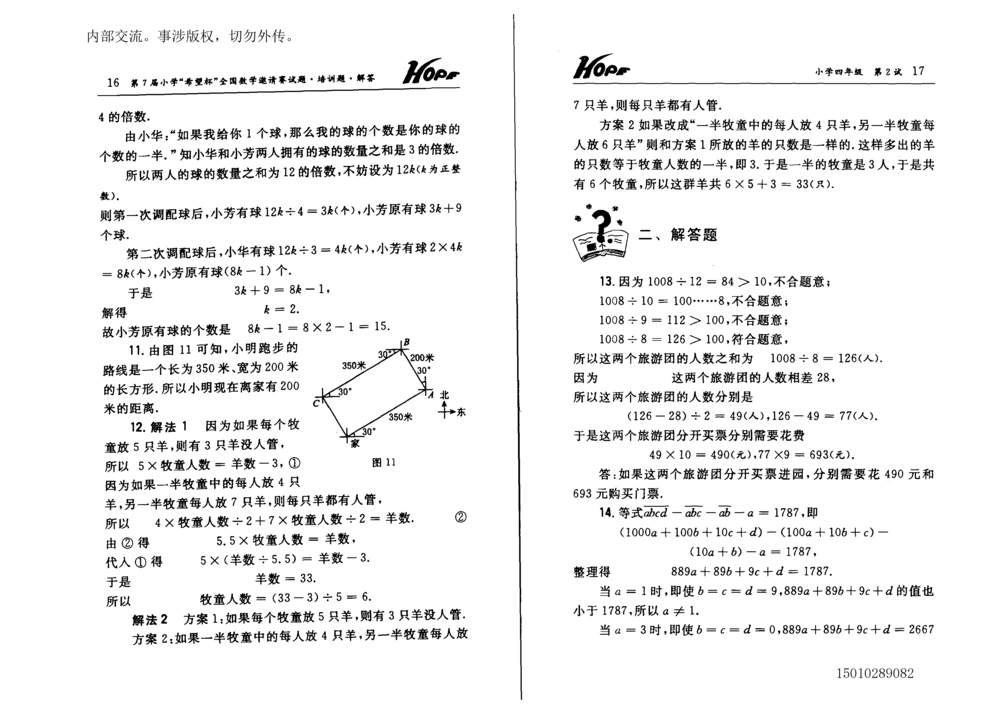 内部交流。事涉版权，切勿外传。
16 第7届小学“希望杯”全国数学邀请赛试题·培训题·解答
HOPE
4的倍数.
由小华:“如果我给你1个球,那么我的球的个数是你的球的
个数的一半.”知小华和小芳两人拥有的球的数量之和是3的倍数.
所以两人的球的数量之和为12的倍数,不妨设为12k(k为正整
数).
则第一次调配球后,小芳有球12k÷4＝3k(个),小芳原有球3k＋9
个球.
第二次调配球后,小华有球12k÷3＝4k(个),小芳有球2×4k
＝8k(个),小芳原有球(8k－1)个.
于是 3k＋9＝8k－1,
解得 k＝2.
故小芳原有球的个数是 8k－1＝8×2－1＝15.
11.由图11可知,小明跑步的
路线是一个长为350米、宽为200米
的长方形.所以小明现在离家有200
米的距离.
B
30°
350米
200米
30°
C
30°
A
北
东
350米
30°
家
图11
12.解法1 因为如果每个牧
童放5只羊,则有3只羊没人管,
所以 5×牧童人数＝羊数－3,①
因为如果一半牧童中的每人放4只
羊,另一半牧童每人放7只羊,则每只羊都有人管,
所以 4×牧童人数÷2＋7×牧童人数÷2＝羊数. ②
由②得 5.5×牧童人数＝羊数,
代人①得 5×(羊数÷5.5)＝羊数－3.
于是 羊数＝33.
所以 牧童人数＝(33－3)÷5＝6.
解法2 方案1:如果每个牧童放5只羊,则有3只羊没人管.
方案2:如果一半牧童中的每人放4只羊,另一半牧童每人放
HOPE
小学四年级 第2试 17
7只羊,则每只羊都有人管.
方案2如果改成“一半牧童中的每人放4只羊,另一半牧童每
人放6只羊”则和方案1所放的羊的只数是一样的.这样多出的羊
的只数等于牧童人数的一半,即3.于是一半的牧童是3人,于是共
有6个牧童,所以这群羊共6×5＋3＝33(只).
二、解答题
13.因为1008÷12＝84＞10,不合题意;
1008÷10＝100……8,不合题意;
1008÷9＝112＞100,不合题意;
1008÷8＝126＞100,符合题意,
所以这两个旅游团的人数之和为 1008÷8＝126(人).
因为 这两个旅游团的人数相差28,
所以这两个旅游团的人数分别是
(126－28)÷2＝49(人),126－49＝77(人).
于是这两个旅游团分开买票分别需要花费
49×10＝490(元),77×9＝693(元).
答:如果这两个旅游团分开买票进园,分别需要花490元和
693元购买门票.
14.等式abcd－abc－ab－a＝1787,即
(1000a＋100b＋10c＋d)－(100a＋10b＋c)－
(10a＋b)－a＝1787,
整理得 889a＋89b＋9c＋d＝1787.
当a＝1时,即使b＝c＝d＝9,889a＋89b＋9c＋d的值也
小于1787,所以a≠1.
当a＝3时,即使b＝c＝d＝0,889a＋89b＋9c＋d＝2667
15010289082